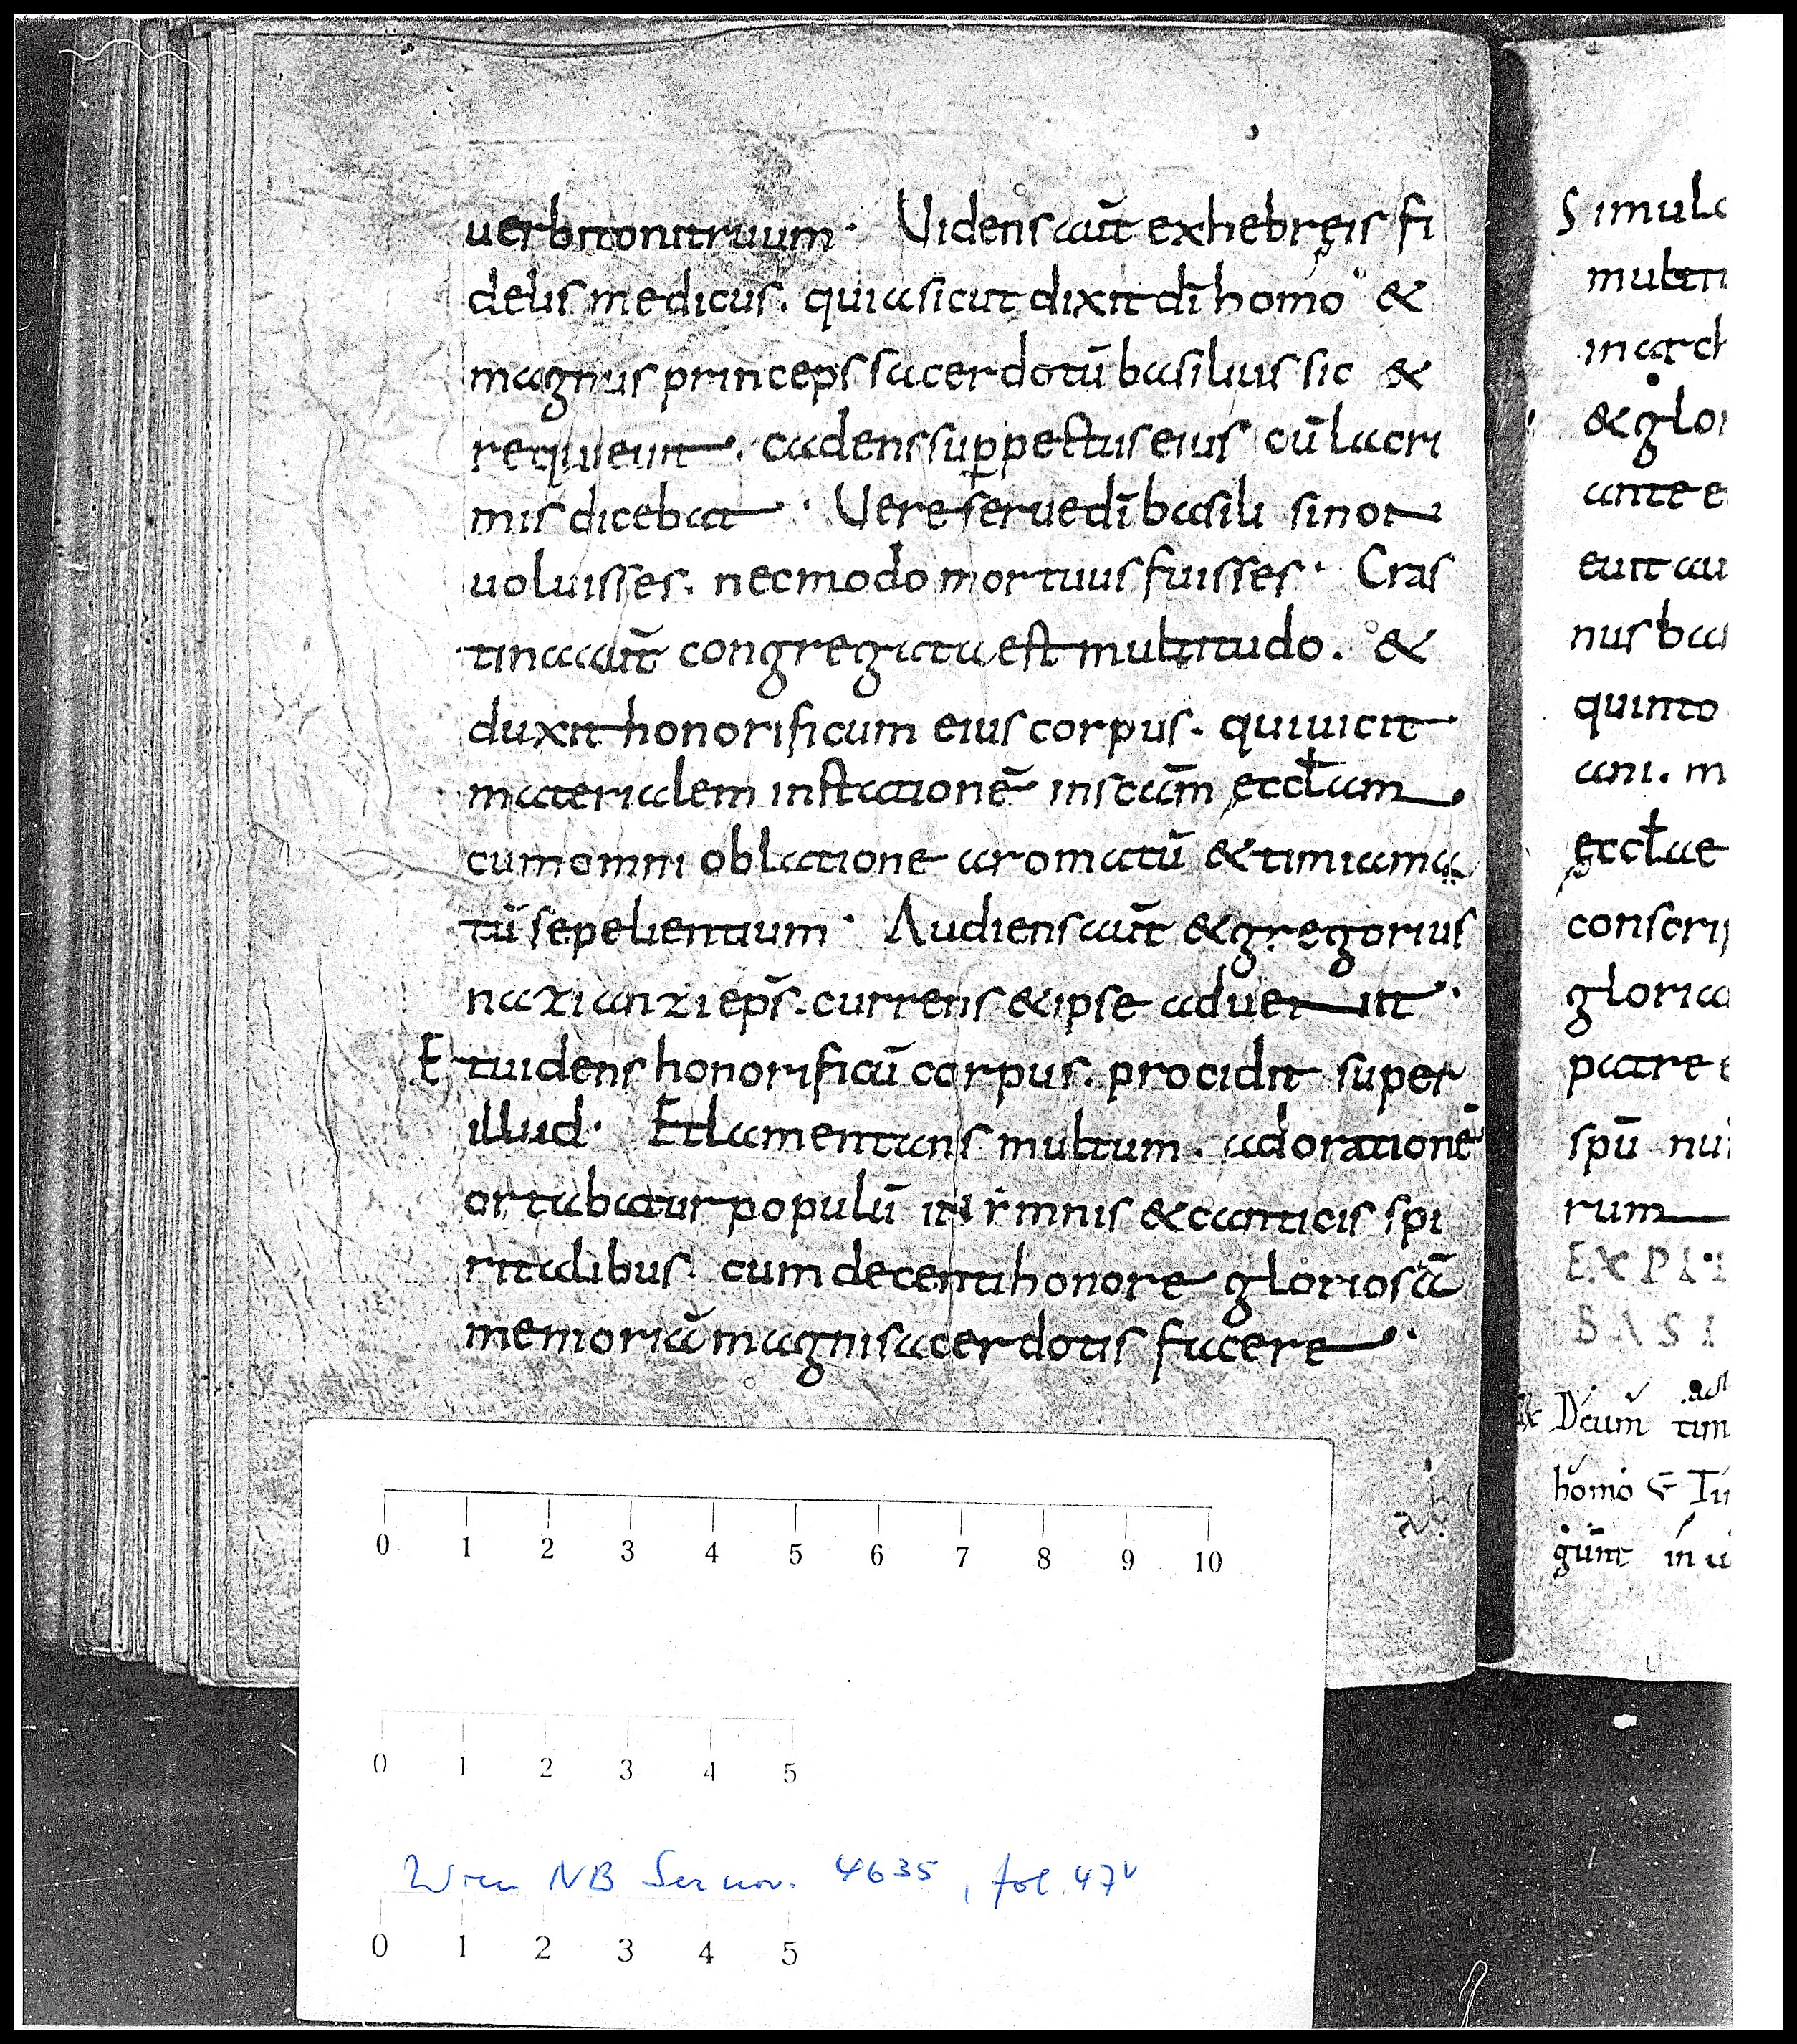 uerbitonitruum· Uidens aut̄ exhebręis fi
delis medicus. quia sicut dixit dī homo &
magnus princeps sacerdotū basilius sic &
requieuit. cadens sup̱ pectus eius cū lacri
mis dicebat· Uere serue dī basili si non
uoluisses. nec modo mortuus fuisses· Cras
tina aut̄ congregata est multitudo. &
duxit honorificum eius corpus. qui uicit
materialem instationē in sc̄am ęcctam
cum omni oblatione aromatū & timiama
tū sepelientium· Audiens aut̄ & gregorius
nazianzi ep̄s. currens & ipse aduenit·
Et uidens honorificū corpus. procidit super
illud· Et lamentans multum. adorationē
ortabatur populū in ymnis & canticis spi
ritalibus. cum decenti honore gloriosā
memoriā magni sacerdotis facere·
Simula
multi
in arch
& glor
ante e
euit au
nus bas
quinto
ani. m
ęcctae
conscrip
gloria
patre e
spū nu
rum
EXPLI
BASI
D̄cum tim
homo
gunt in
0 1 2 3 4 5 6 7 8 9 10
0 1 2 3 4 5
Wien NB Ser. nov. 4635, fol. 47v
0 1 2 3 4 5